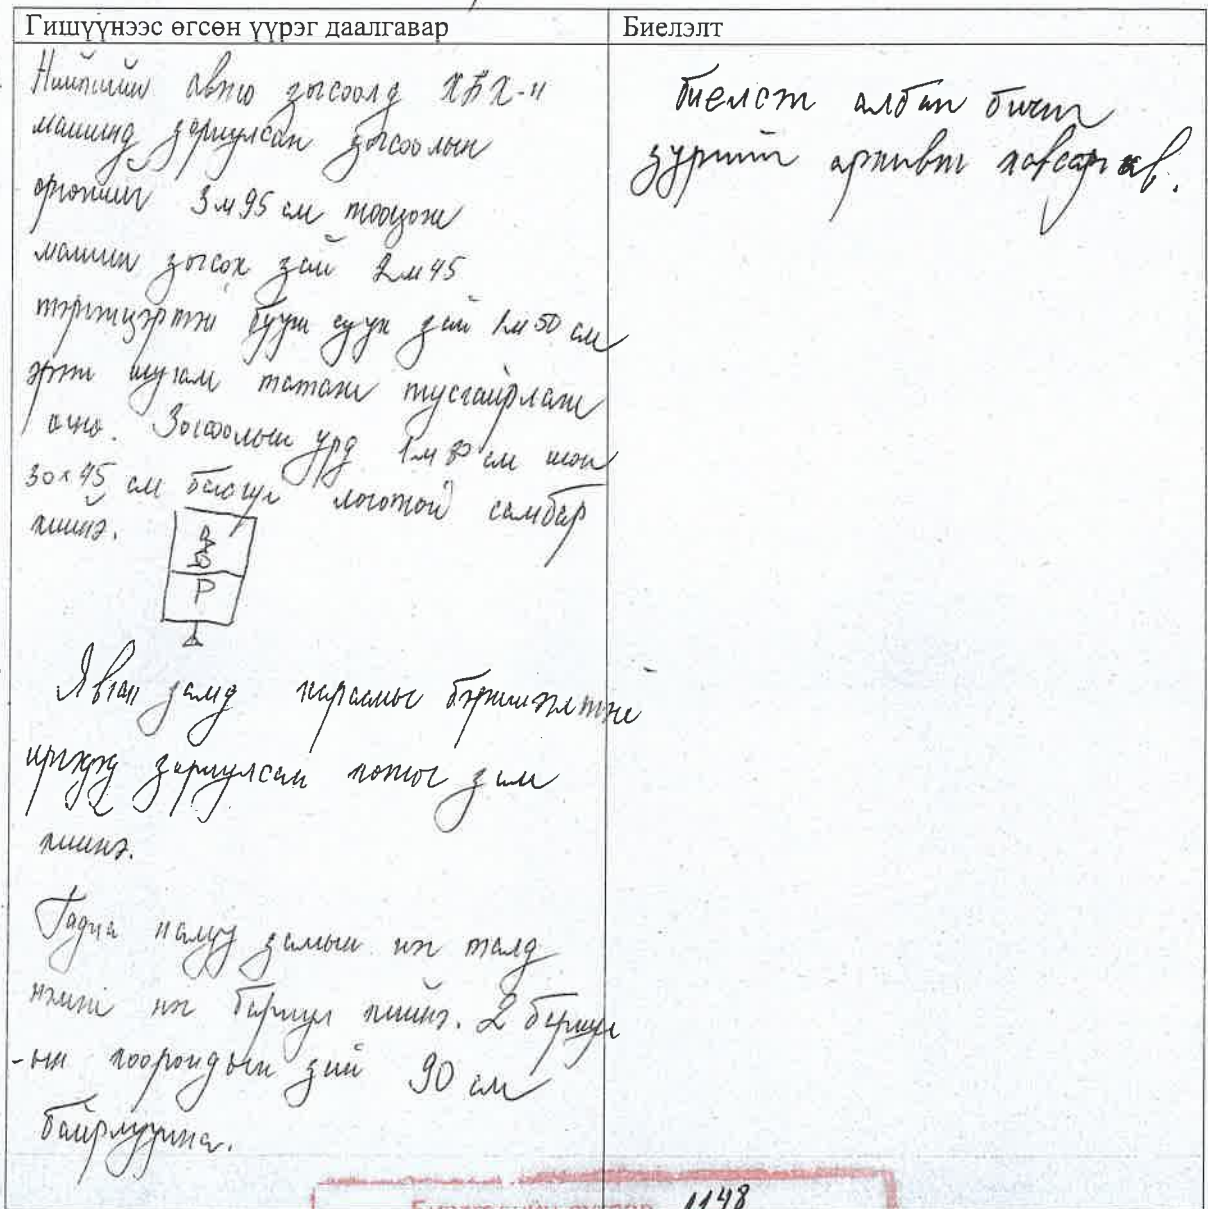 Гишүүнээс өгсөн үүрэг даалгавар
Биелэлт
Нийтийн авто зогсоолд ХБХ-н
машинд зориулсан зогсоолын
өргөнийг 3м 95 см тооцож
машин зогсох зай 2м 45
тэргэнцэртэй бууж суух зай 1м 50 см
эрээн шугам татаж тусгайрлаж
өгнө. Зогсоолын урд 1м 80 см шон
30х45 см босгуул логотой самбар
хийнэ.
P
Явган замд харааны бэрхшээлтэй
иргэдэд зориулсан хөтөч зам
хийнэ.
Гадна налуу замын нэг талд
нэмж нэг бариул хийнэ. 2 бариул
-ын хоорондын зай 90 см
байрлуулна.
Биелсэн албан бичиг
зургийг архивт хавсаргав.
1148